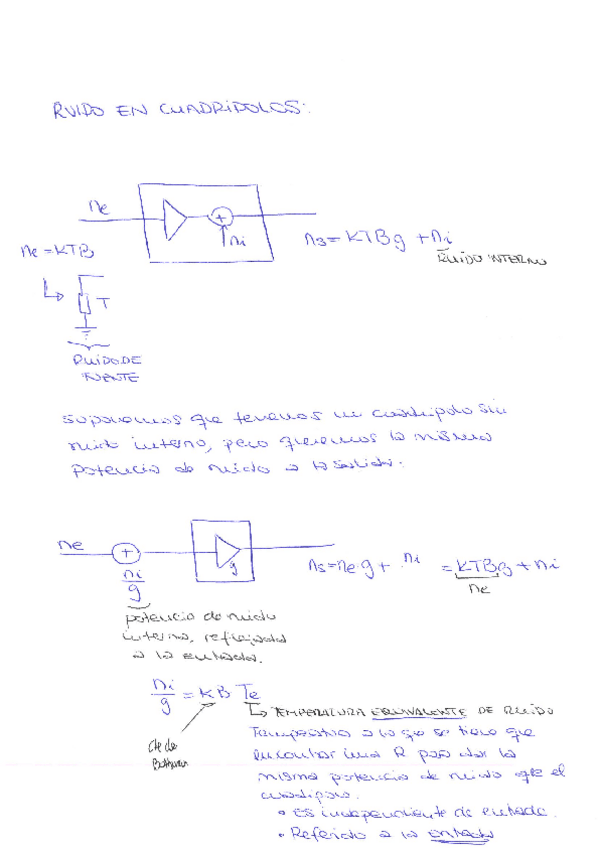 RUIDO EN CUADRIPOLOS:
ne
+
ni
ne = KTB
ns = KTBg + ni
RUIDO INTERNO
T
RUIDO DE
FUENTE
supongamos que tenemos un cuadripolo sin
ruido interno, pero queremos la misma
potencia de ruido a la salida.
ne
+
g
ni/g
ns = ne·g + ni = KTBg + ni
ne
potencia de ruido
interno, reflejada
a la entrada.
ni/g = KB Te
TEMPERATURA EQUIVALENTE DE RUIDO
Temperatura a la que se tiene que
encontrar una R para dar la
misma potencia de ruido que el
cuadripolo.
cte de
Boltzman
• es independiente de entrada.
• Referido a la entrada